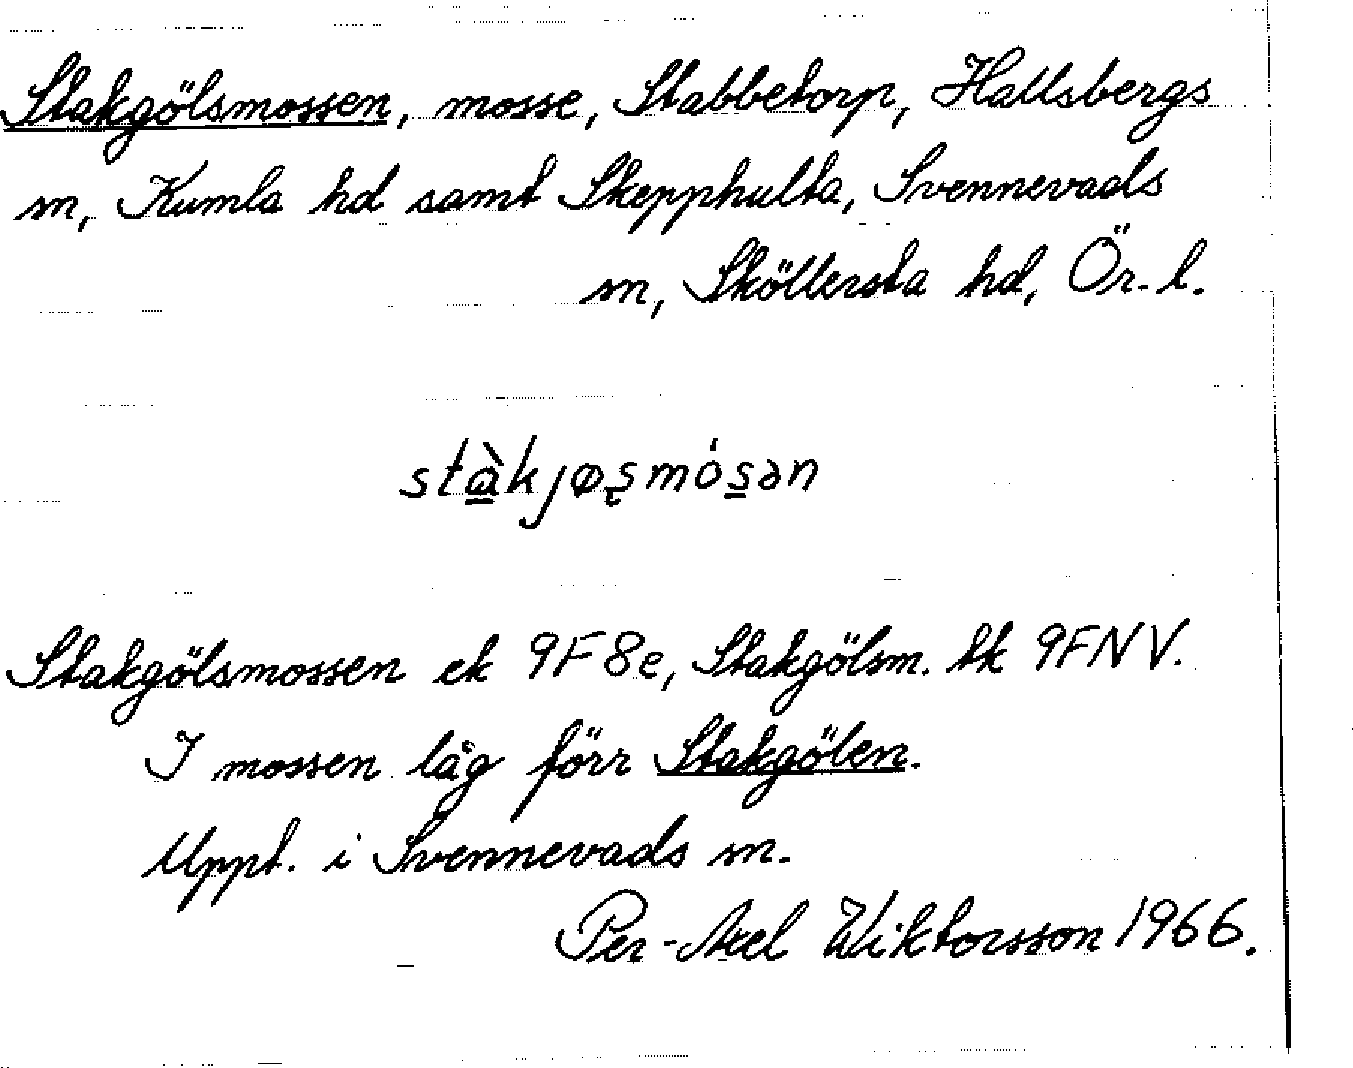 Stakgölsmossen, mosse, Stabbetorp, Hallsbergs
sn, Kumla hd samt Skepphulta, Svennevads
sn, Sköllersta hd, Ör. l.
stàkjøʂmósən
Stakgölsmossen ek 9F8e, Stakgölsm. tk 9FNV.
I mossen låg förr Stakgölen.
Uppt. i Svennevads sn.
Per-Axel Wiktorsson 1966.